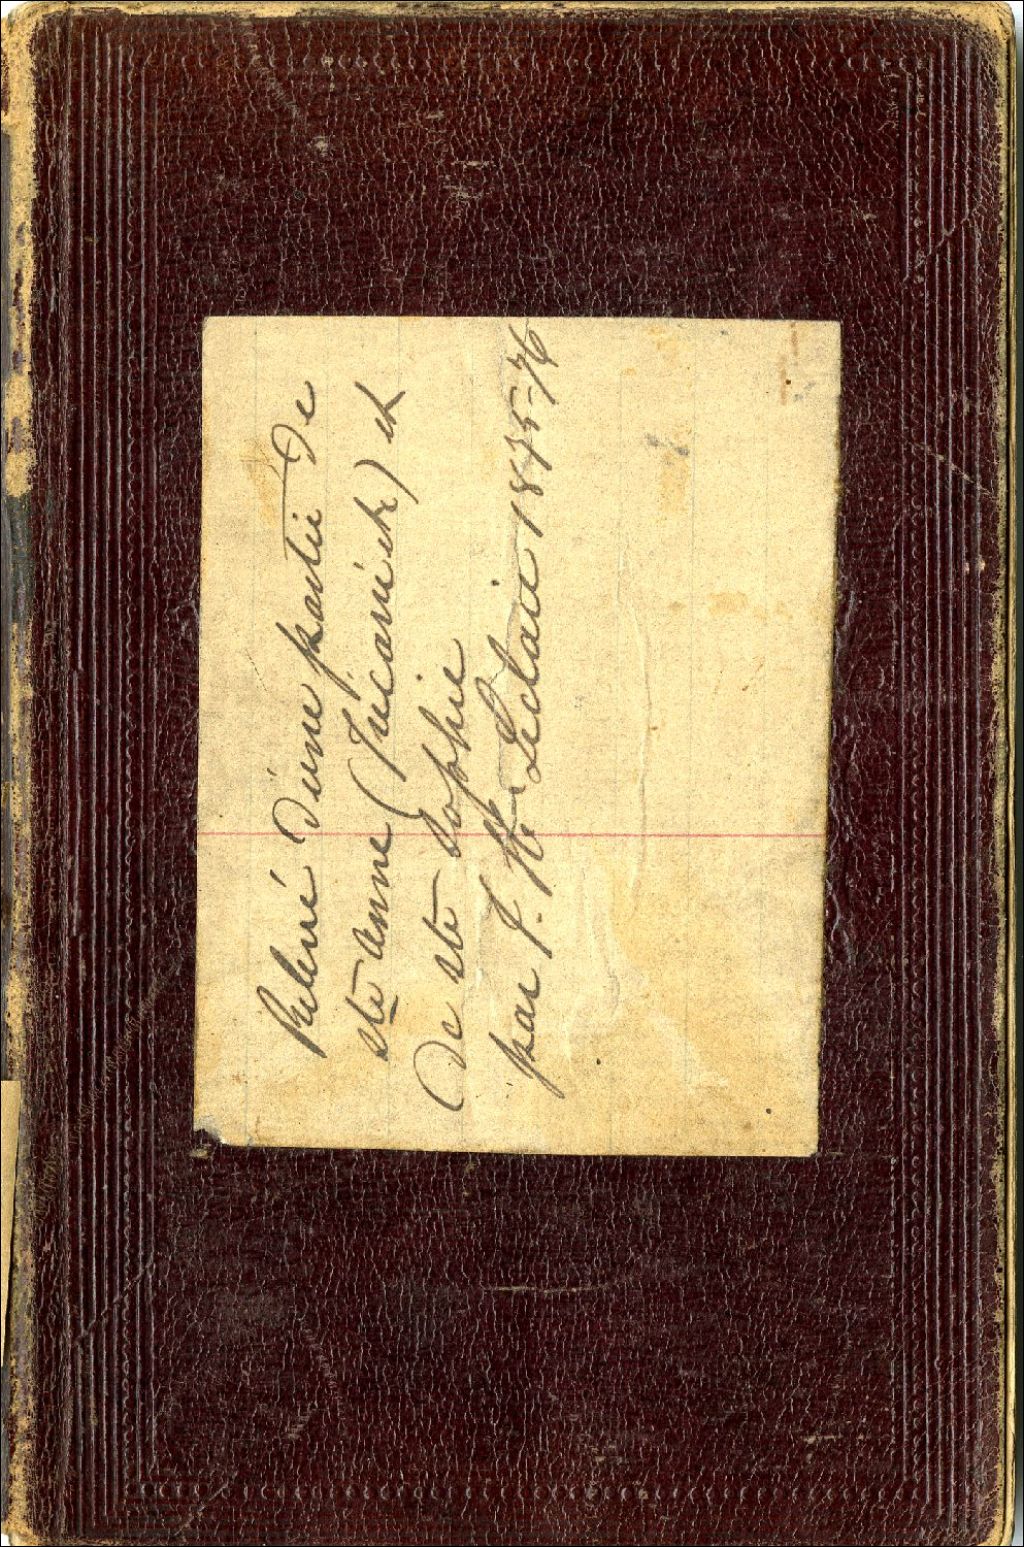 Relevé d'une partie de
ste anne (Tucanick) et
de ste Sophie
par J. H. Leclair 1875-76